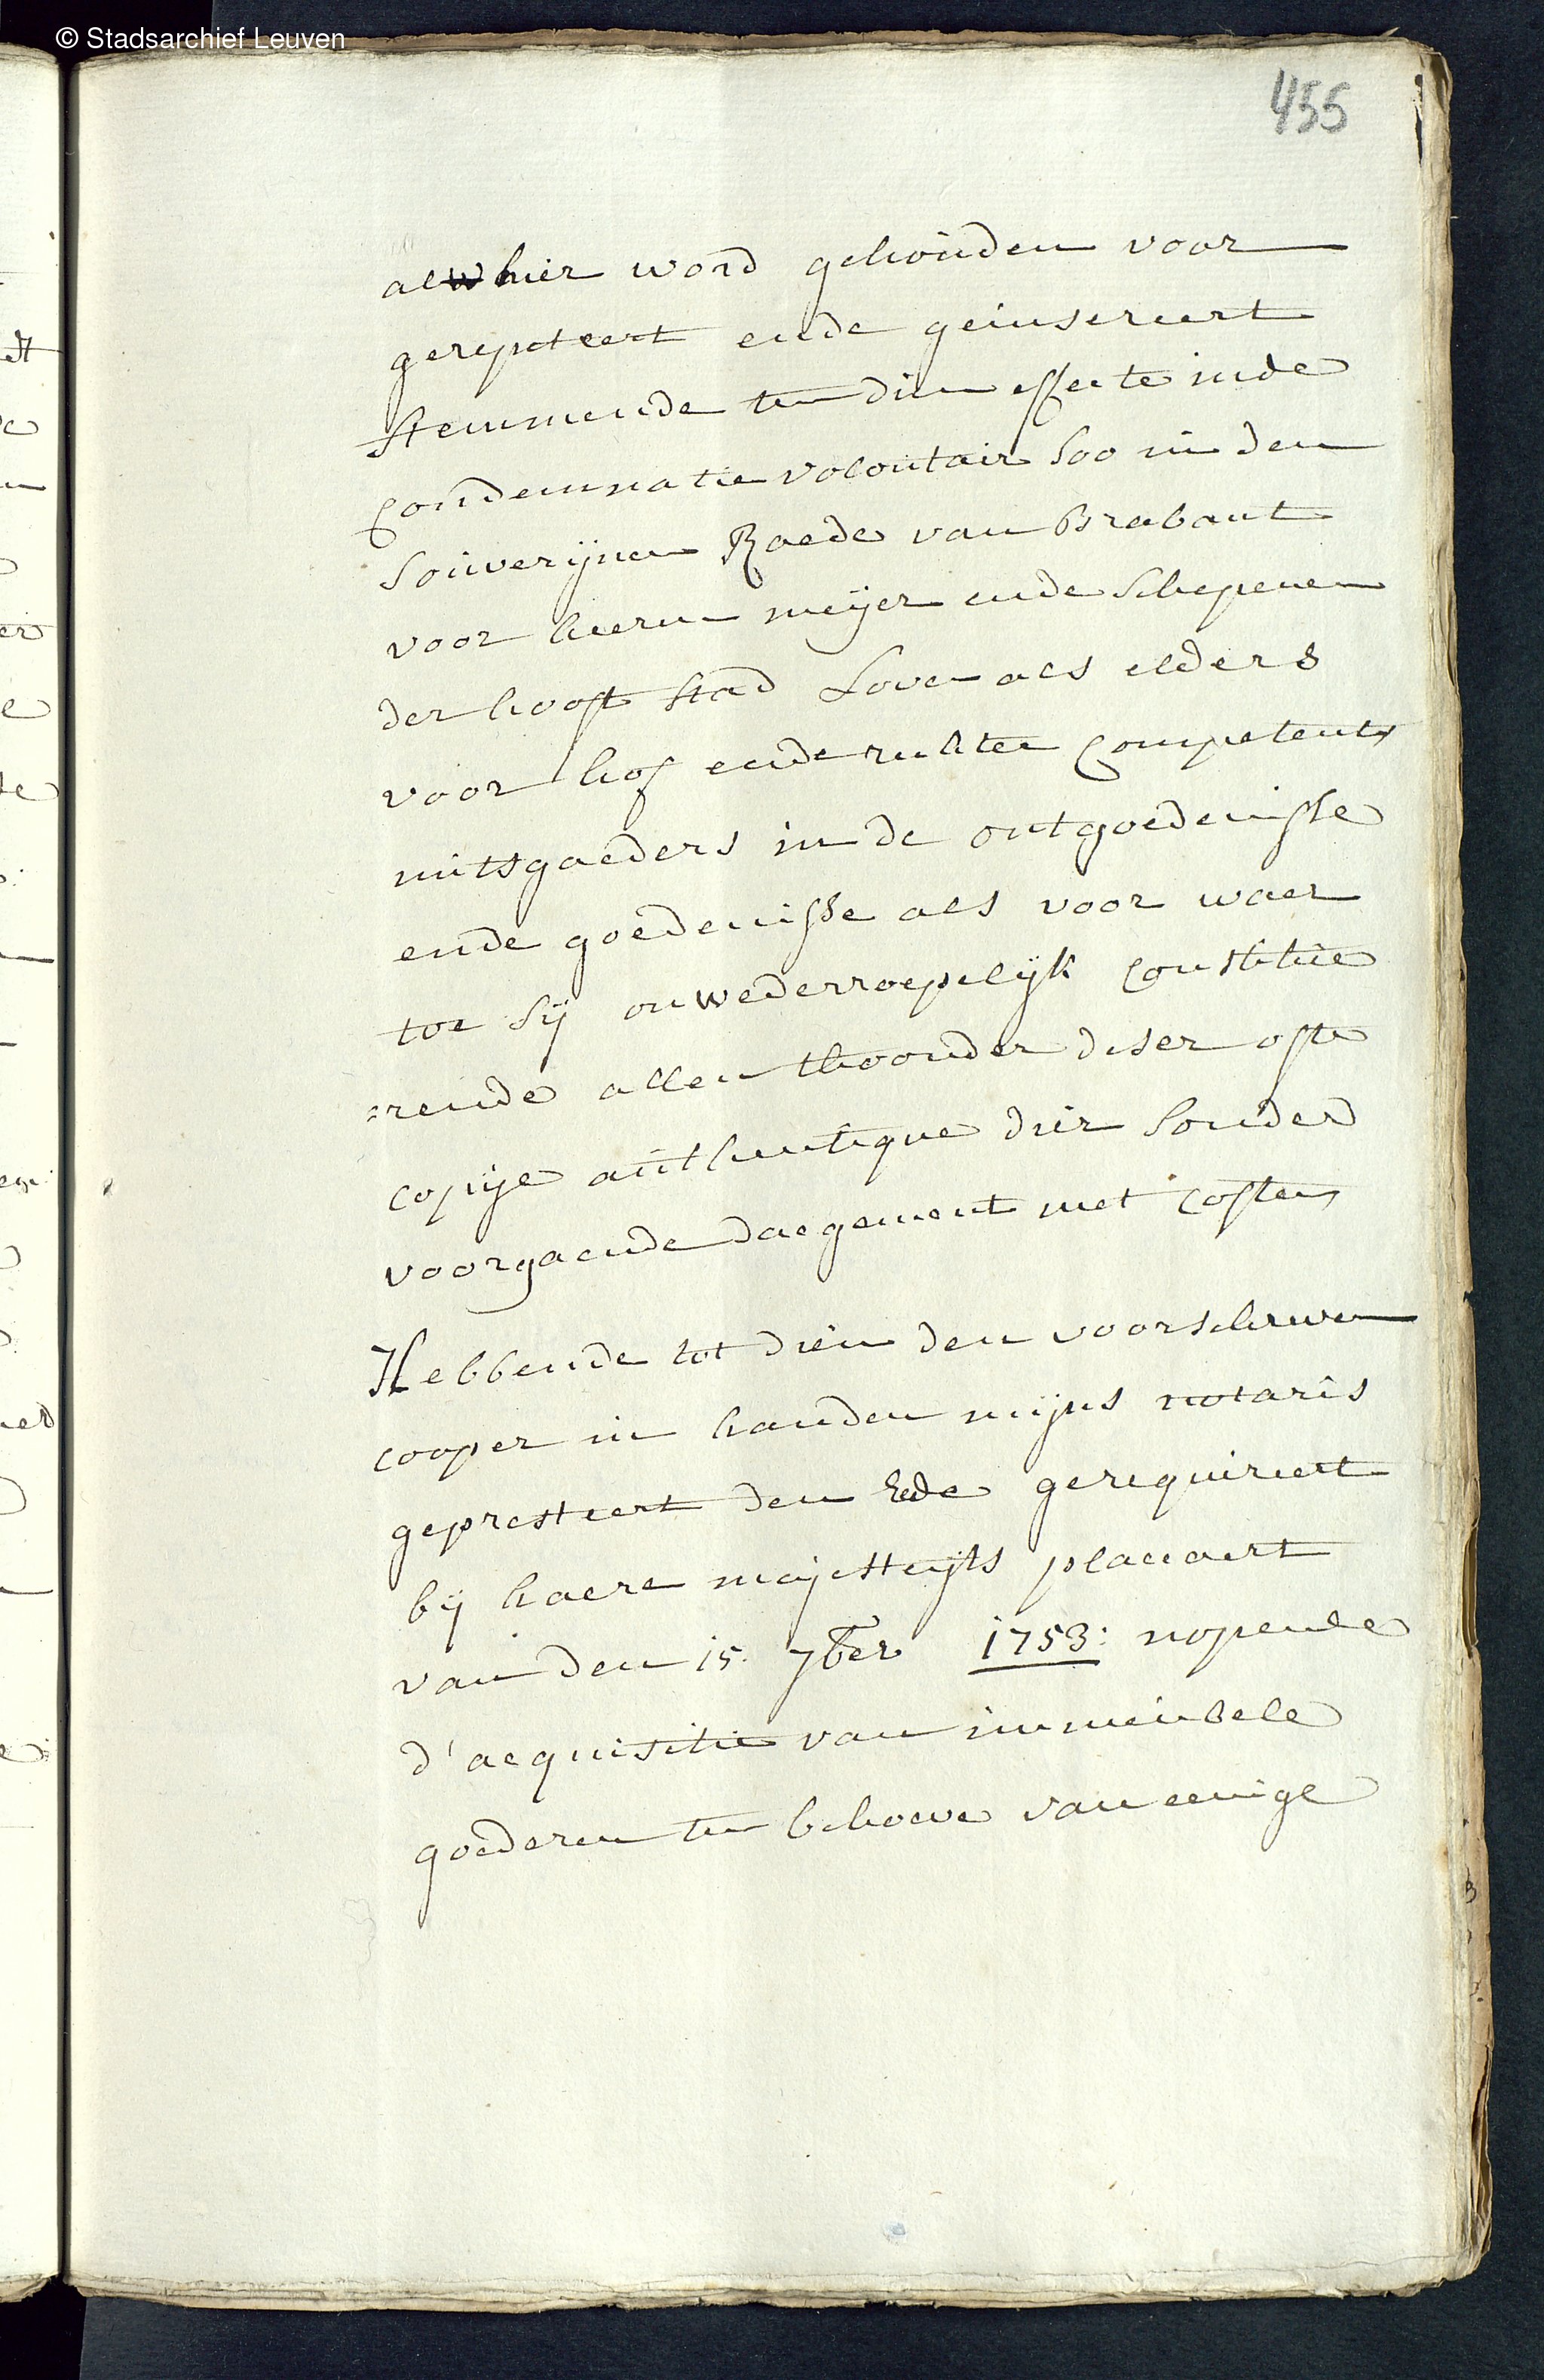 © Stadsarchief Leuven
455
alwhier word gehouden voor
gerepeteert ende geinsereert
stemmende ten dien effecte inde
condemnatie volontair soo in den
souverijnen Raede van Brabant
voor heeren meijer ende schepenen
der hooft stad Loven als elders
voor hof ende rechter competent
mitsgaeders in de ontgoedenisse
ende goedenisse als voor waer
toe sij onwederroepelijk constitue
=rende allen thoonder deser ofte
copije authentique dier sonder
voorgaende daegement met costen
Hebbende tot dien den voorschreven
cooper in handen mijns notaris
gepresteert den Eede gerequireert
bij haere majesteijts placcaert
van den 15. 7ber 1753: nopende
d'acquisitie van immeubele
goederen ten behoeve van eenige